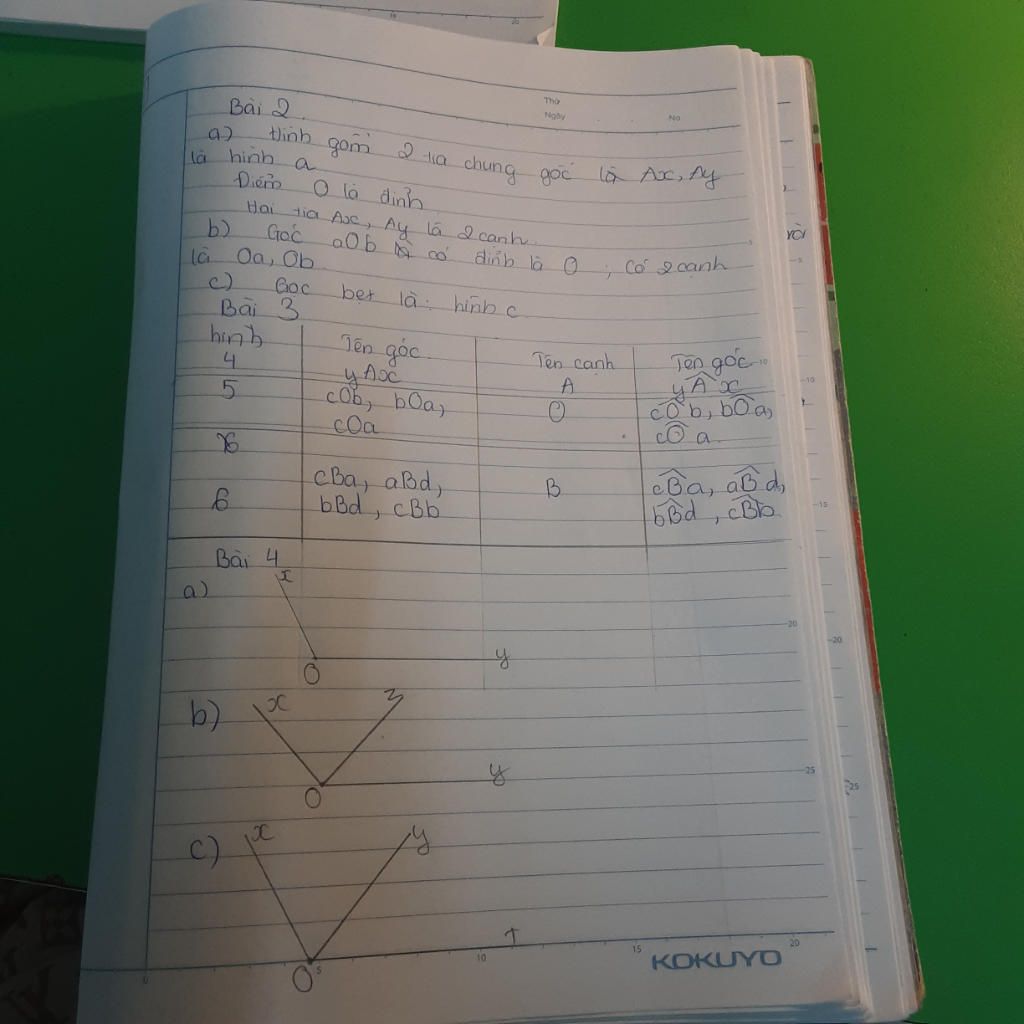 Thứ
Ngày
No
Bài 2
a) Hình gồm 2 tia chung gốc là Ax, Ay
là hình a
Điểm O là đỉnh
Hai tia Ax, Ay là 2 cạnh.
b) Góc aOb có đỉnh là O ; có 2 cạnh
là Oa, Ob
c) Góc bẹt là: hình c
Bài 3
hình Tên góc Tên cạnh Tên góc
4 yAx A yAx
5 cOb, bOa, O cOb, bOa,
cOa cOa
6 cBa, aBd, B cBa, aBd,
bBd, cBb bBd, cBb
Bài 4
a) x
O y
b) x z
O y
c) x y
O
5 10 15 20
KOKUYO